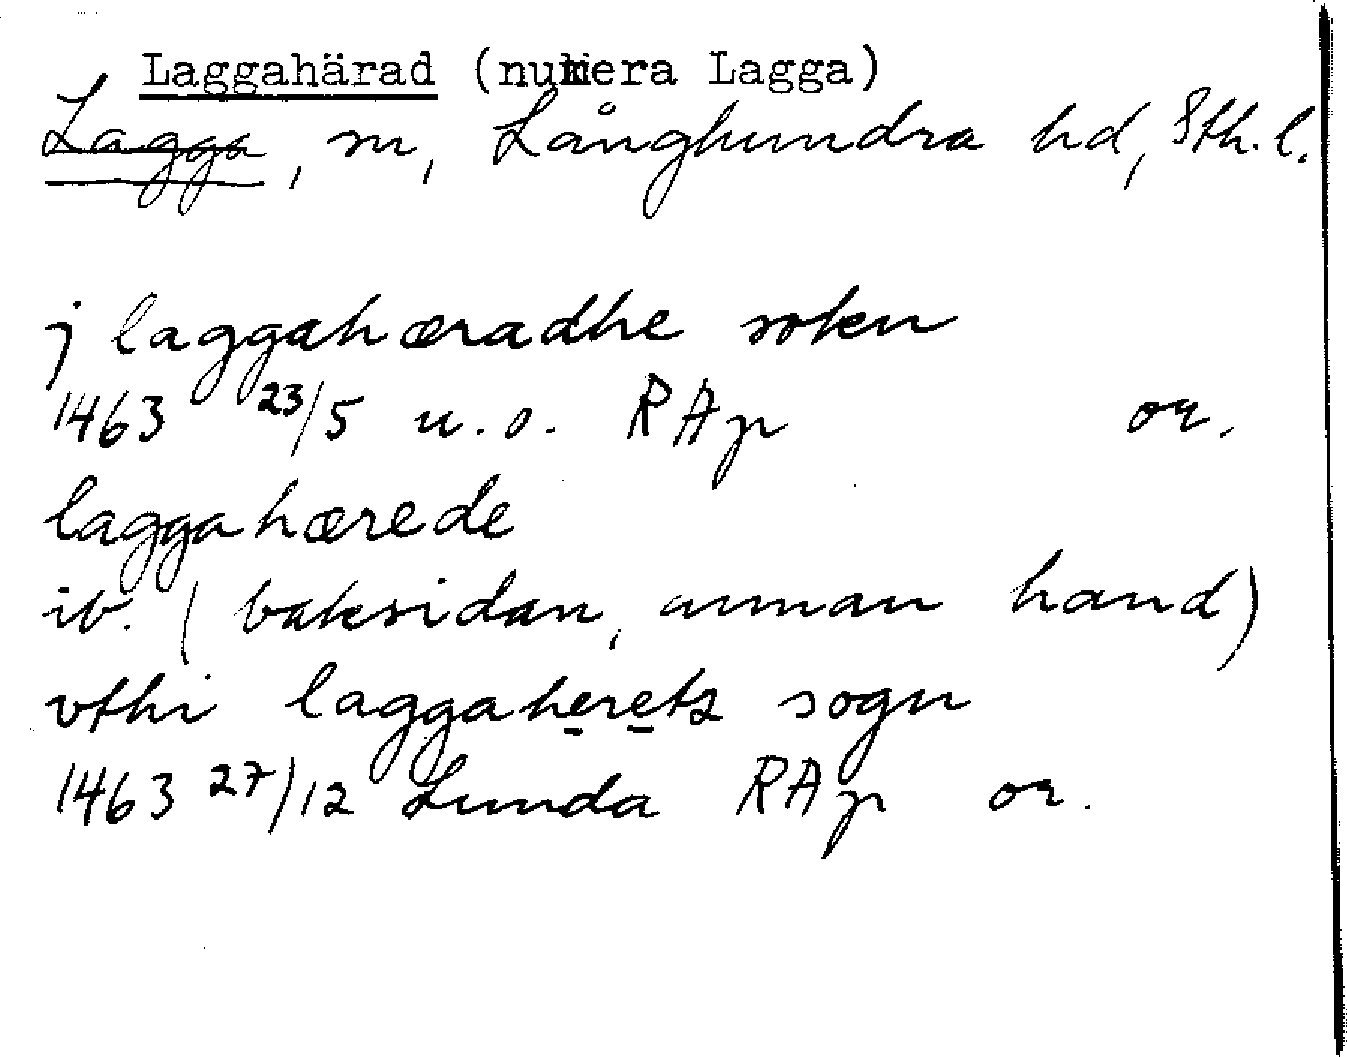 Laggahärad (numera Lagga)
Lagga, sn, Långhundra hd, Sth. l.
j laggahæradhe sokn
1463 23/5 u. o. RAp or.
laggahærede
ib. (baksidan, annan hand)
vthi laggaheretz sogn
1463 27/12 Lunda RAp or.